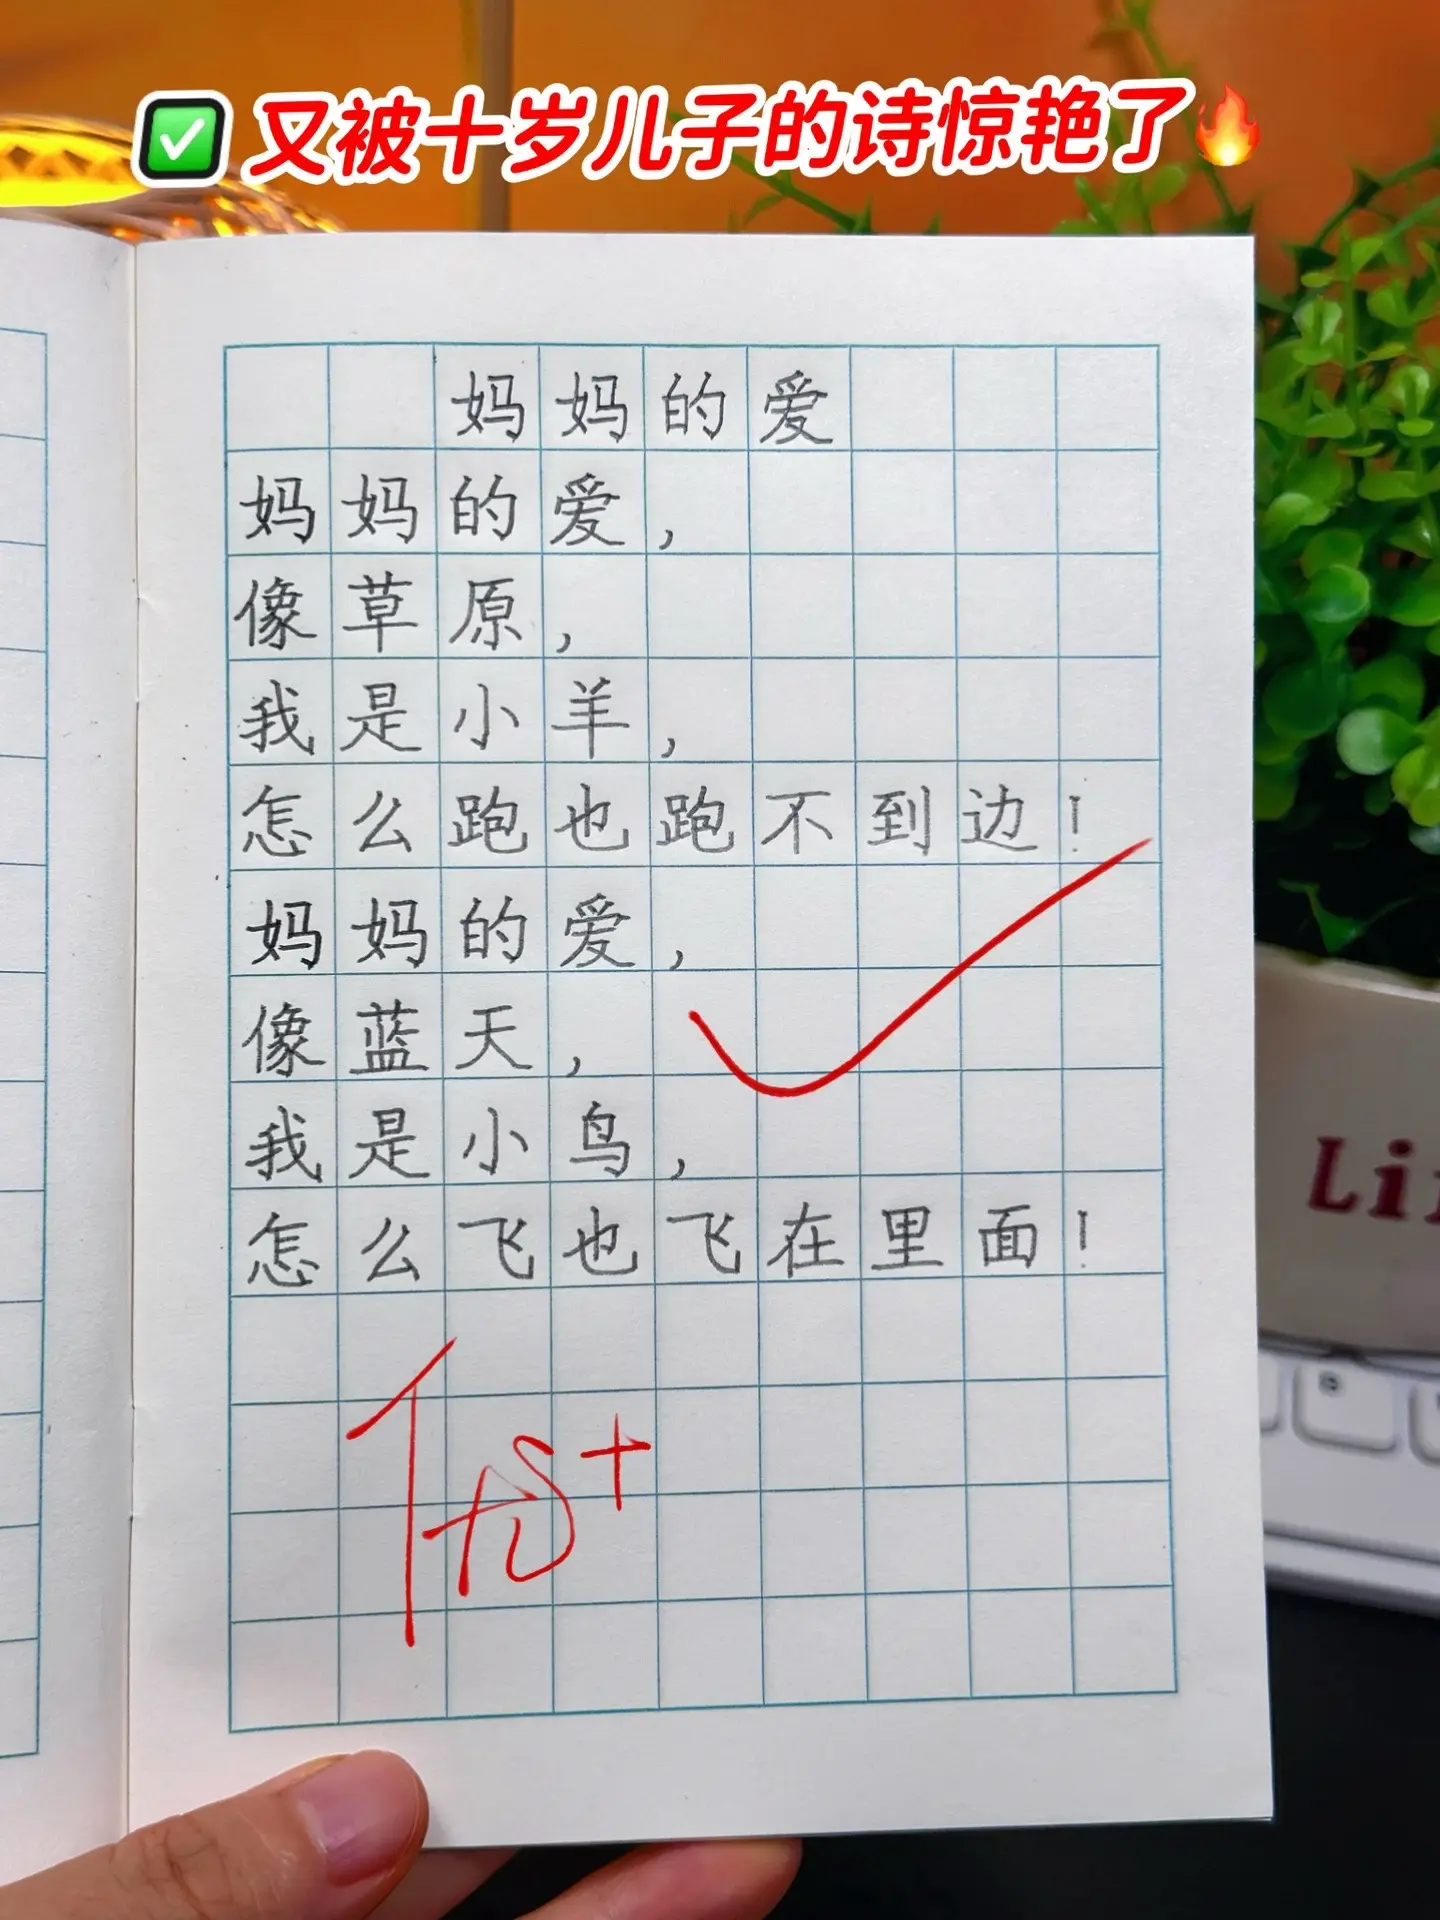 ✅又被十岁儿子的诗惊艳了🔥
妈妈的爱
妈妈的爱，
像草原，
我是小羊，
怎么跑也跑不到边！
妈妈的爱，
像蓝天，
我是小鸟，
怎么飞也飞在里面！